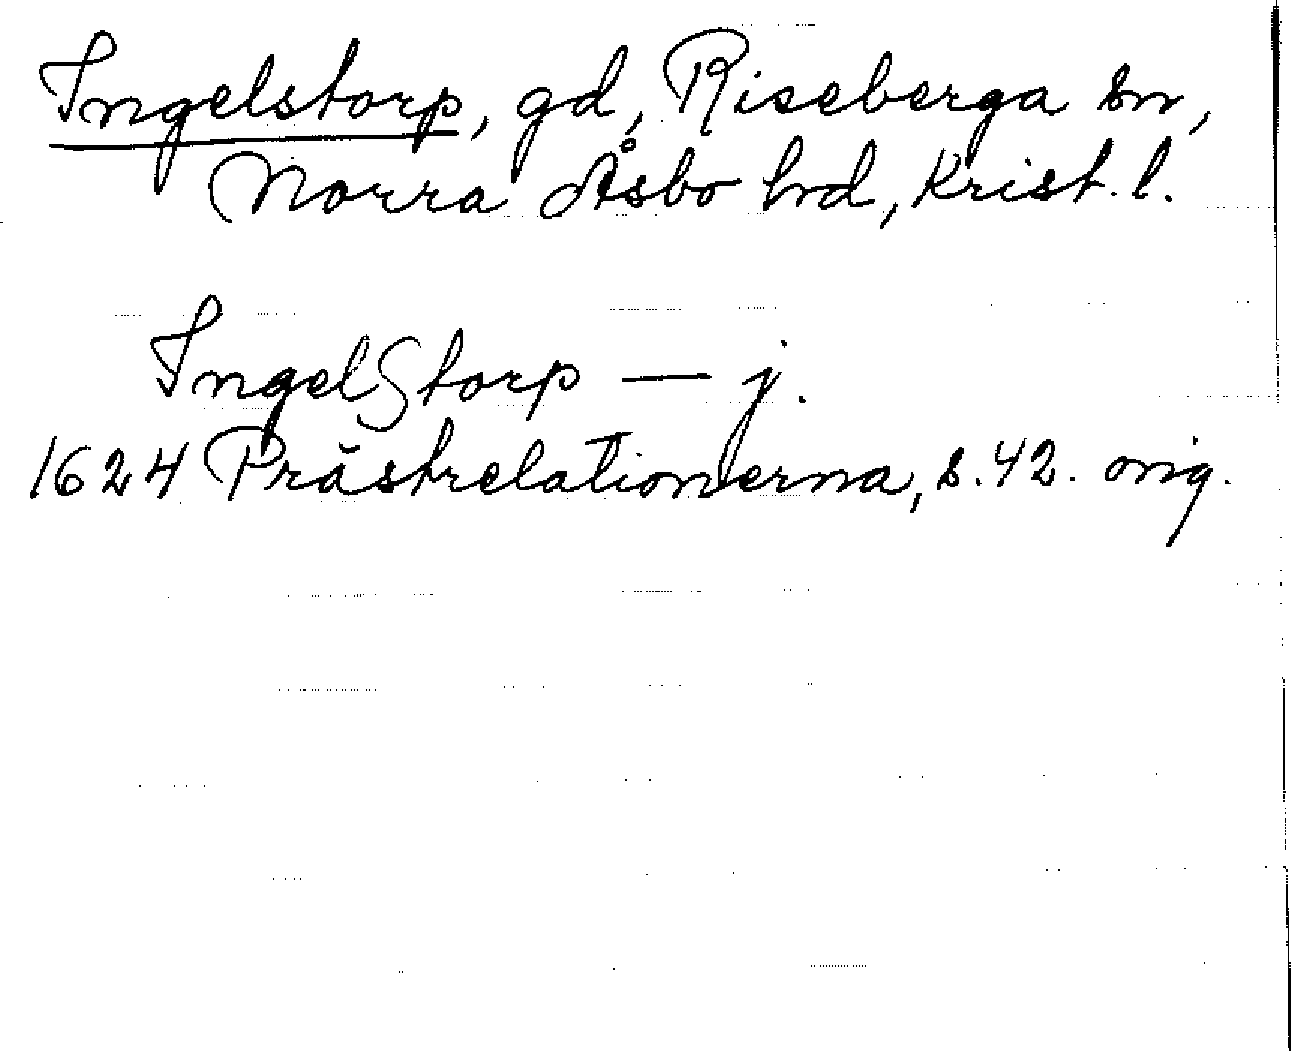 Ingelstorp, gd, Riseberga sn,
Norra Åsbo hrd, Krist. l.
IngelStorp — j.
1624 Prästrelationerna, s. 42. orig.